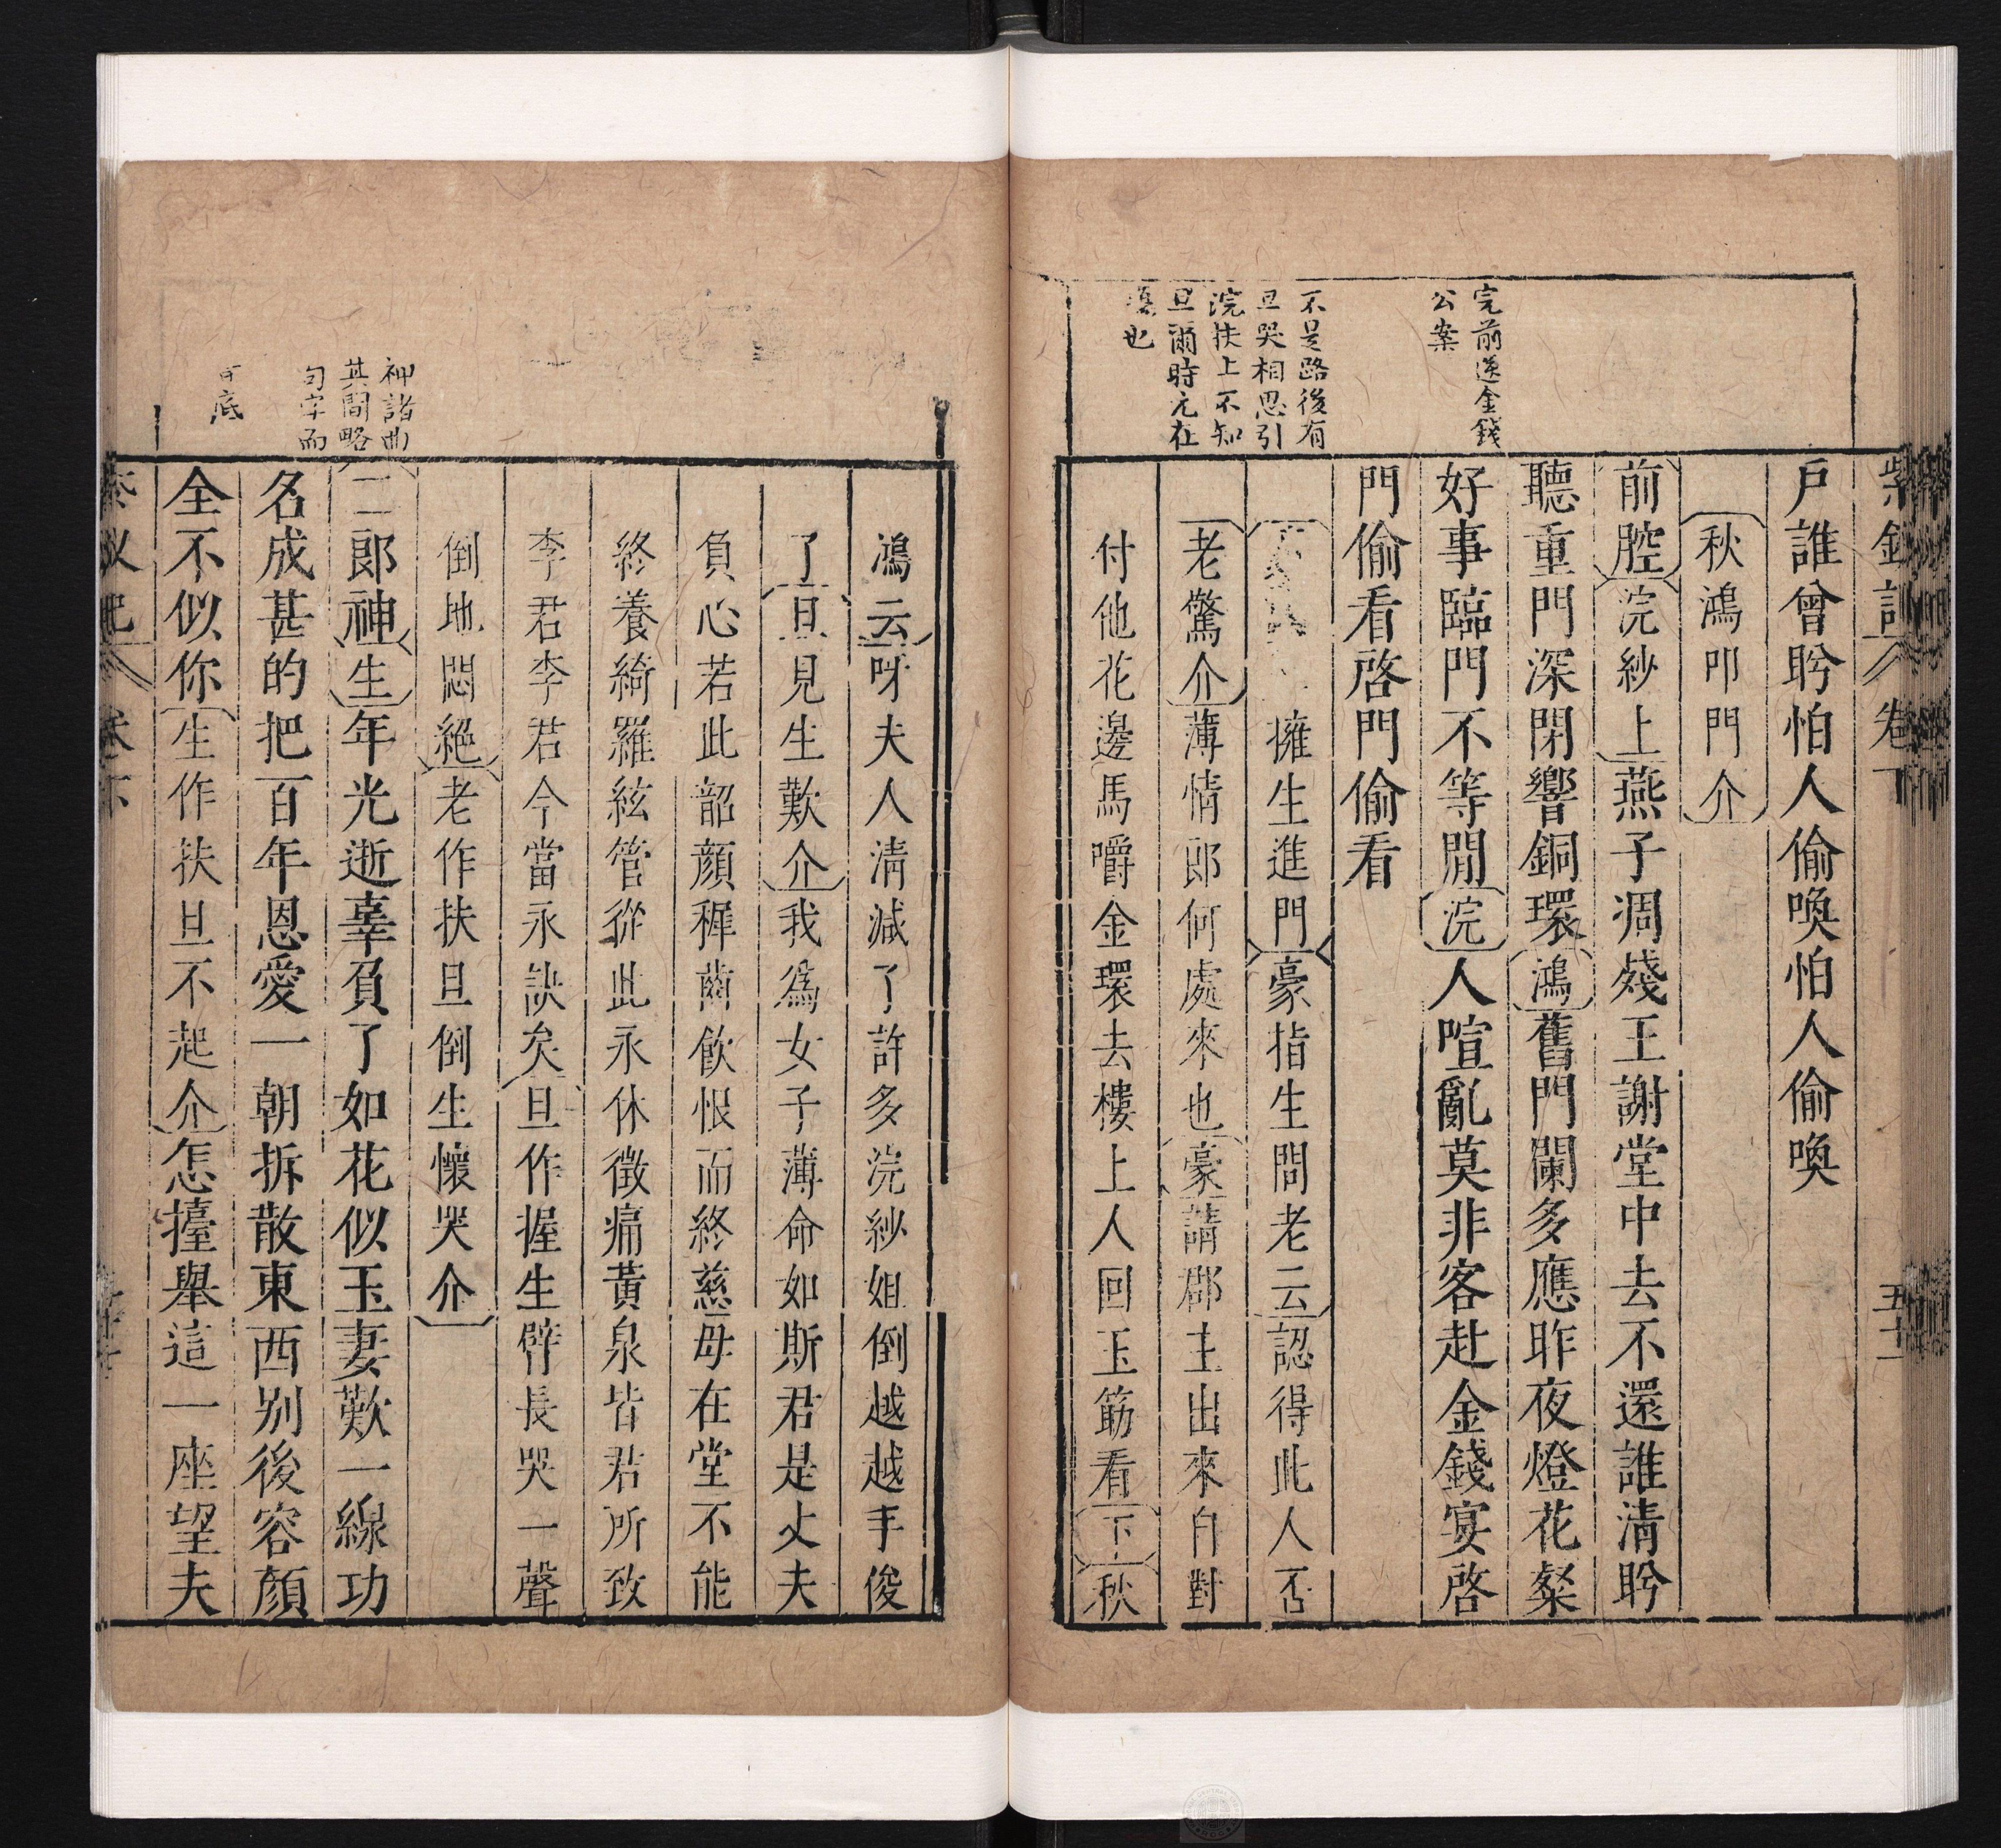 紫釵記 卷下 五十一
完前送金錢
公案
不是路後有
旦哭相思引
浣扶上不知
旦爾時尢在
也
戶誰曾盻怕人偷喚怕人偷喚
秋鴻叩門介
前腔浣紗上燕子凋殘王謝堂中去不還誰清盻
聽重門深閉響銅環鴻舊門闌多應昨夜燈花粲
好事臨門不等閒浣人喧亂莫非客赴金錢宴啓
門偷看啓門偷看
擁生進門豪指生問老云認得此人否
老驚介薄情郎何處來也豪請郡主出來自對
付他花邊馬嚼金環去樓上人回玉筯看下秋
神諸曲
其間略
句字而
底
鴻云呀夫人清減了許多浣紗姐倒越越手俊
了旦見生歎介我為女子薄命如斯君是丈夫
負心若此韶顏穉齒飮恨而終慈母在堂不能
終養綺羅絃管從此永休徵痛黃泉皆君所致
李君李君今當永訣矣旦作握生臂長哭一聲
倒地悶絕老作扶旦倒生懷哭介
二郎神生年光逝辜負了如花似玉妻歎一線功
名成甚的把百年恩愛一朝拆散東西別後容顏
全不似你生作扶旦不起介怎擡舉這一座望夫